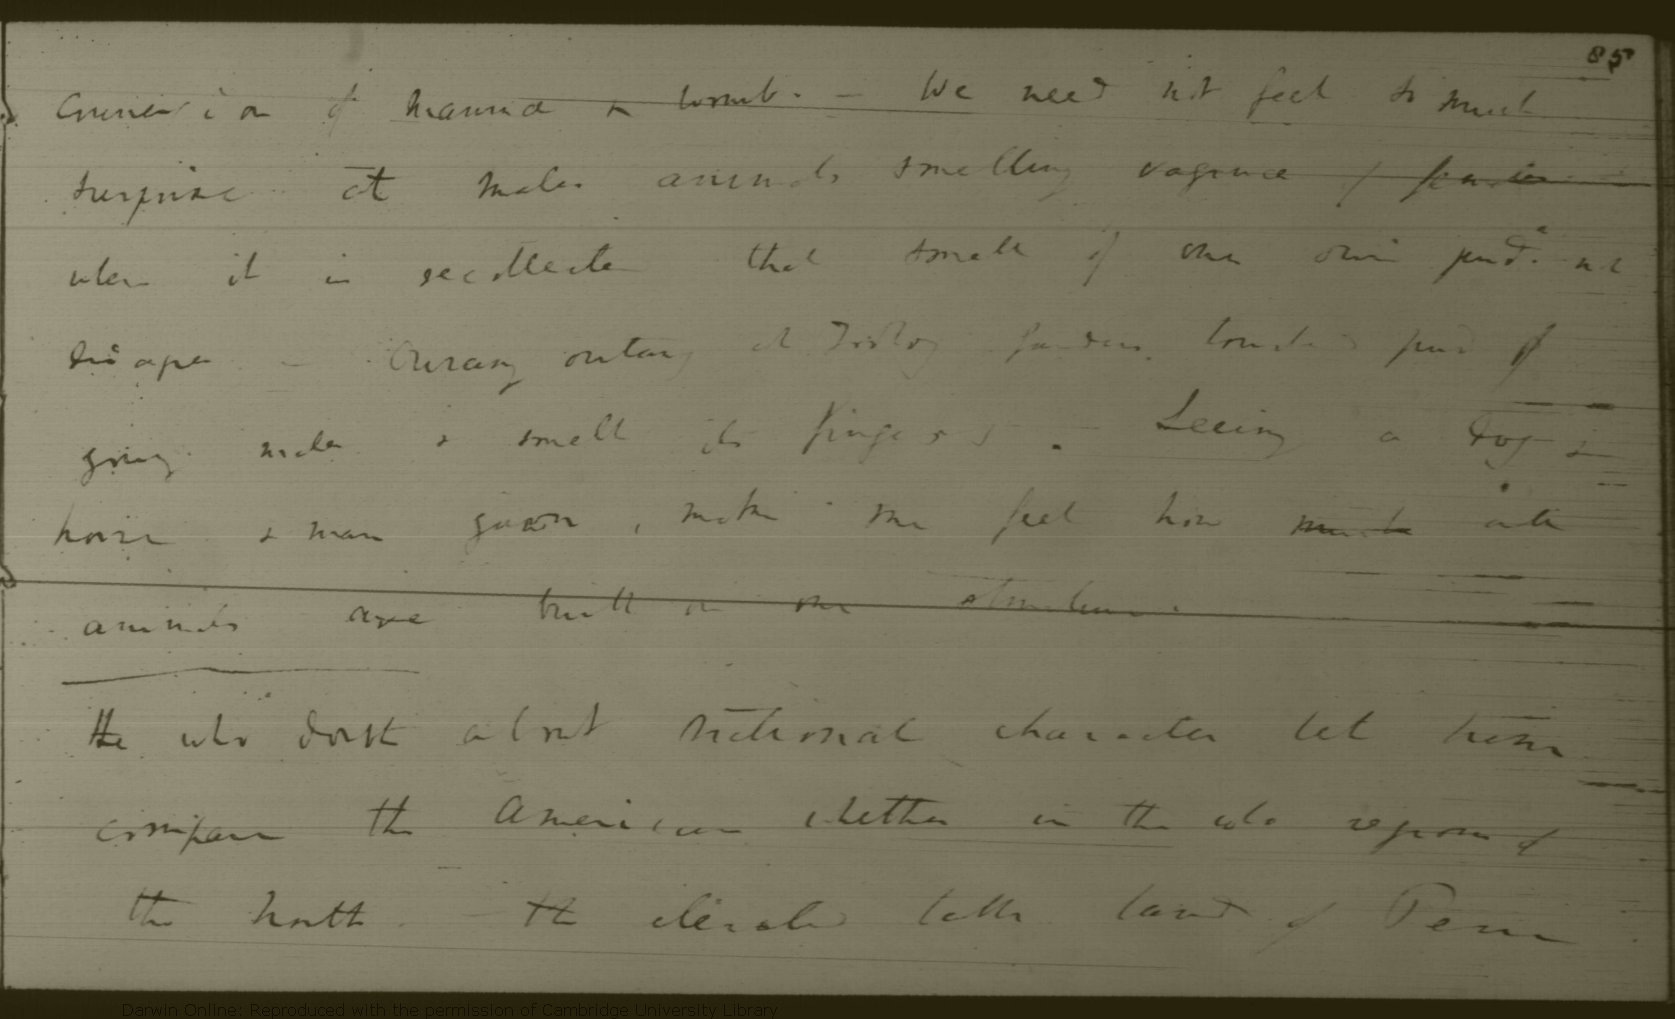 85
connexion of mamma & womb. — We need not feel so much
surprise at male animals smelling vagina of females
when it is recollected that smell of one's own pud. not
disagre — Ourang outang at Zoolog Gardens touched pud of
young males & smell its fingers. — Seeing a dog &
horse & man yawn, makes me feel how much all
animals are built on one structure.
He who doubts about national character let him
compare the American whether in the cold regions of
the North — the elevated table land of Peru
Darwin Online: Reproduced with the permission of Cambridge University Library